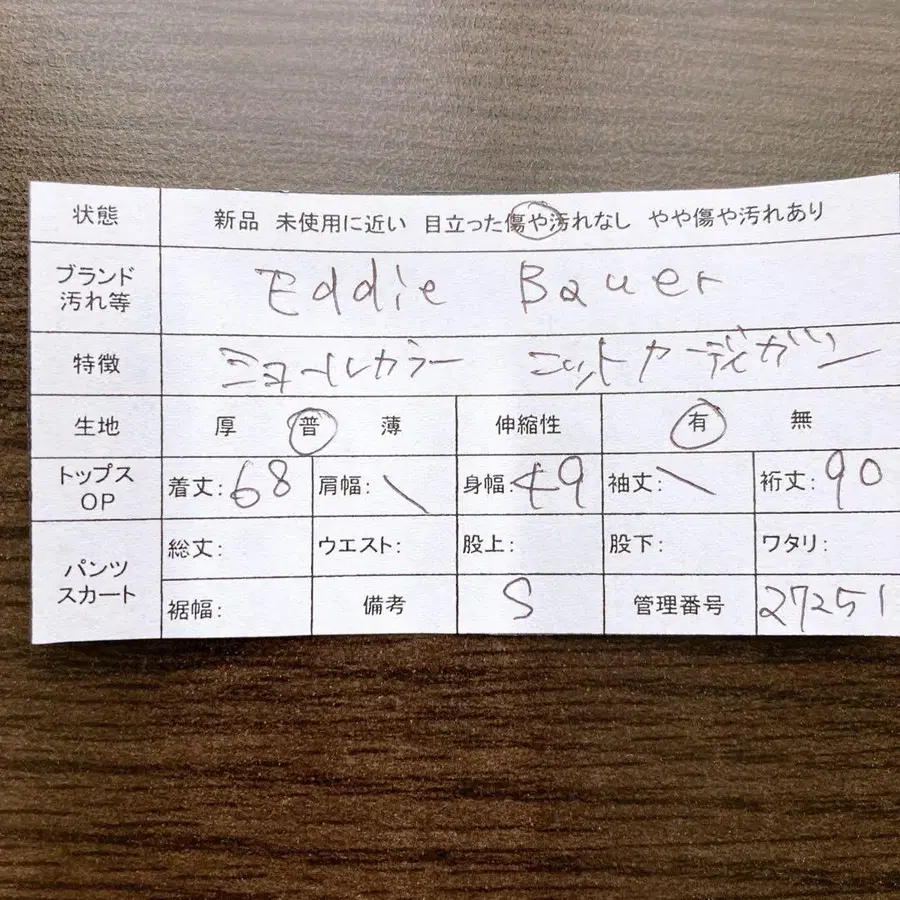 状態 新品 未使用に近い 目立った傷や汚れなし やや傷や汚れあり
ブランド
汚れ等
Eddie Bauer
特徴 ショールカラー ニットカーディガン
生地 厚 普 薄 伸縮性 有 無
トップス
OP
着丈:68 肩幅:\ 身幅:49 袖丈:\ 裄丈:90
パンツ
スカート
総丈: ウエスト: 股上: 股下: ワタリ:
裾幅: 備考 S 管理番号 27251